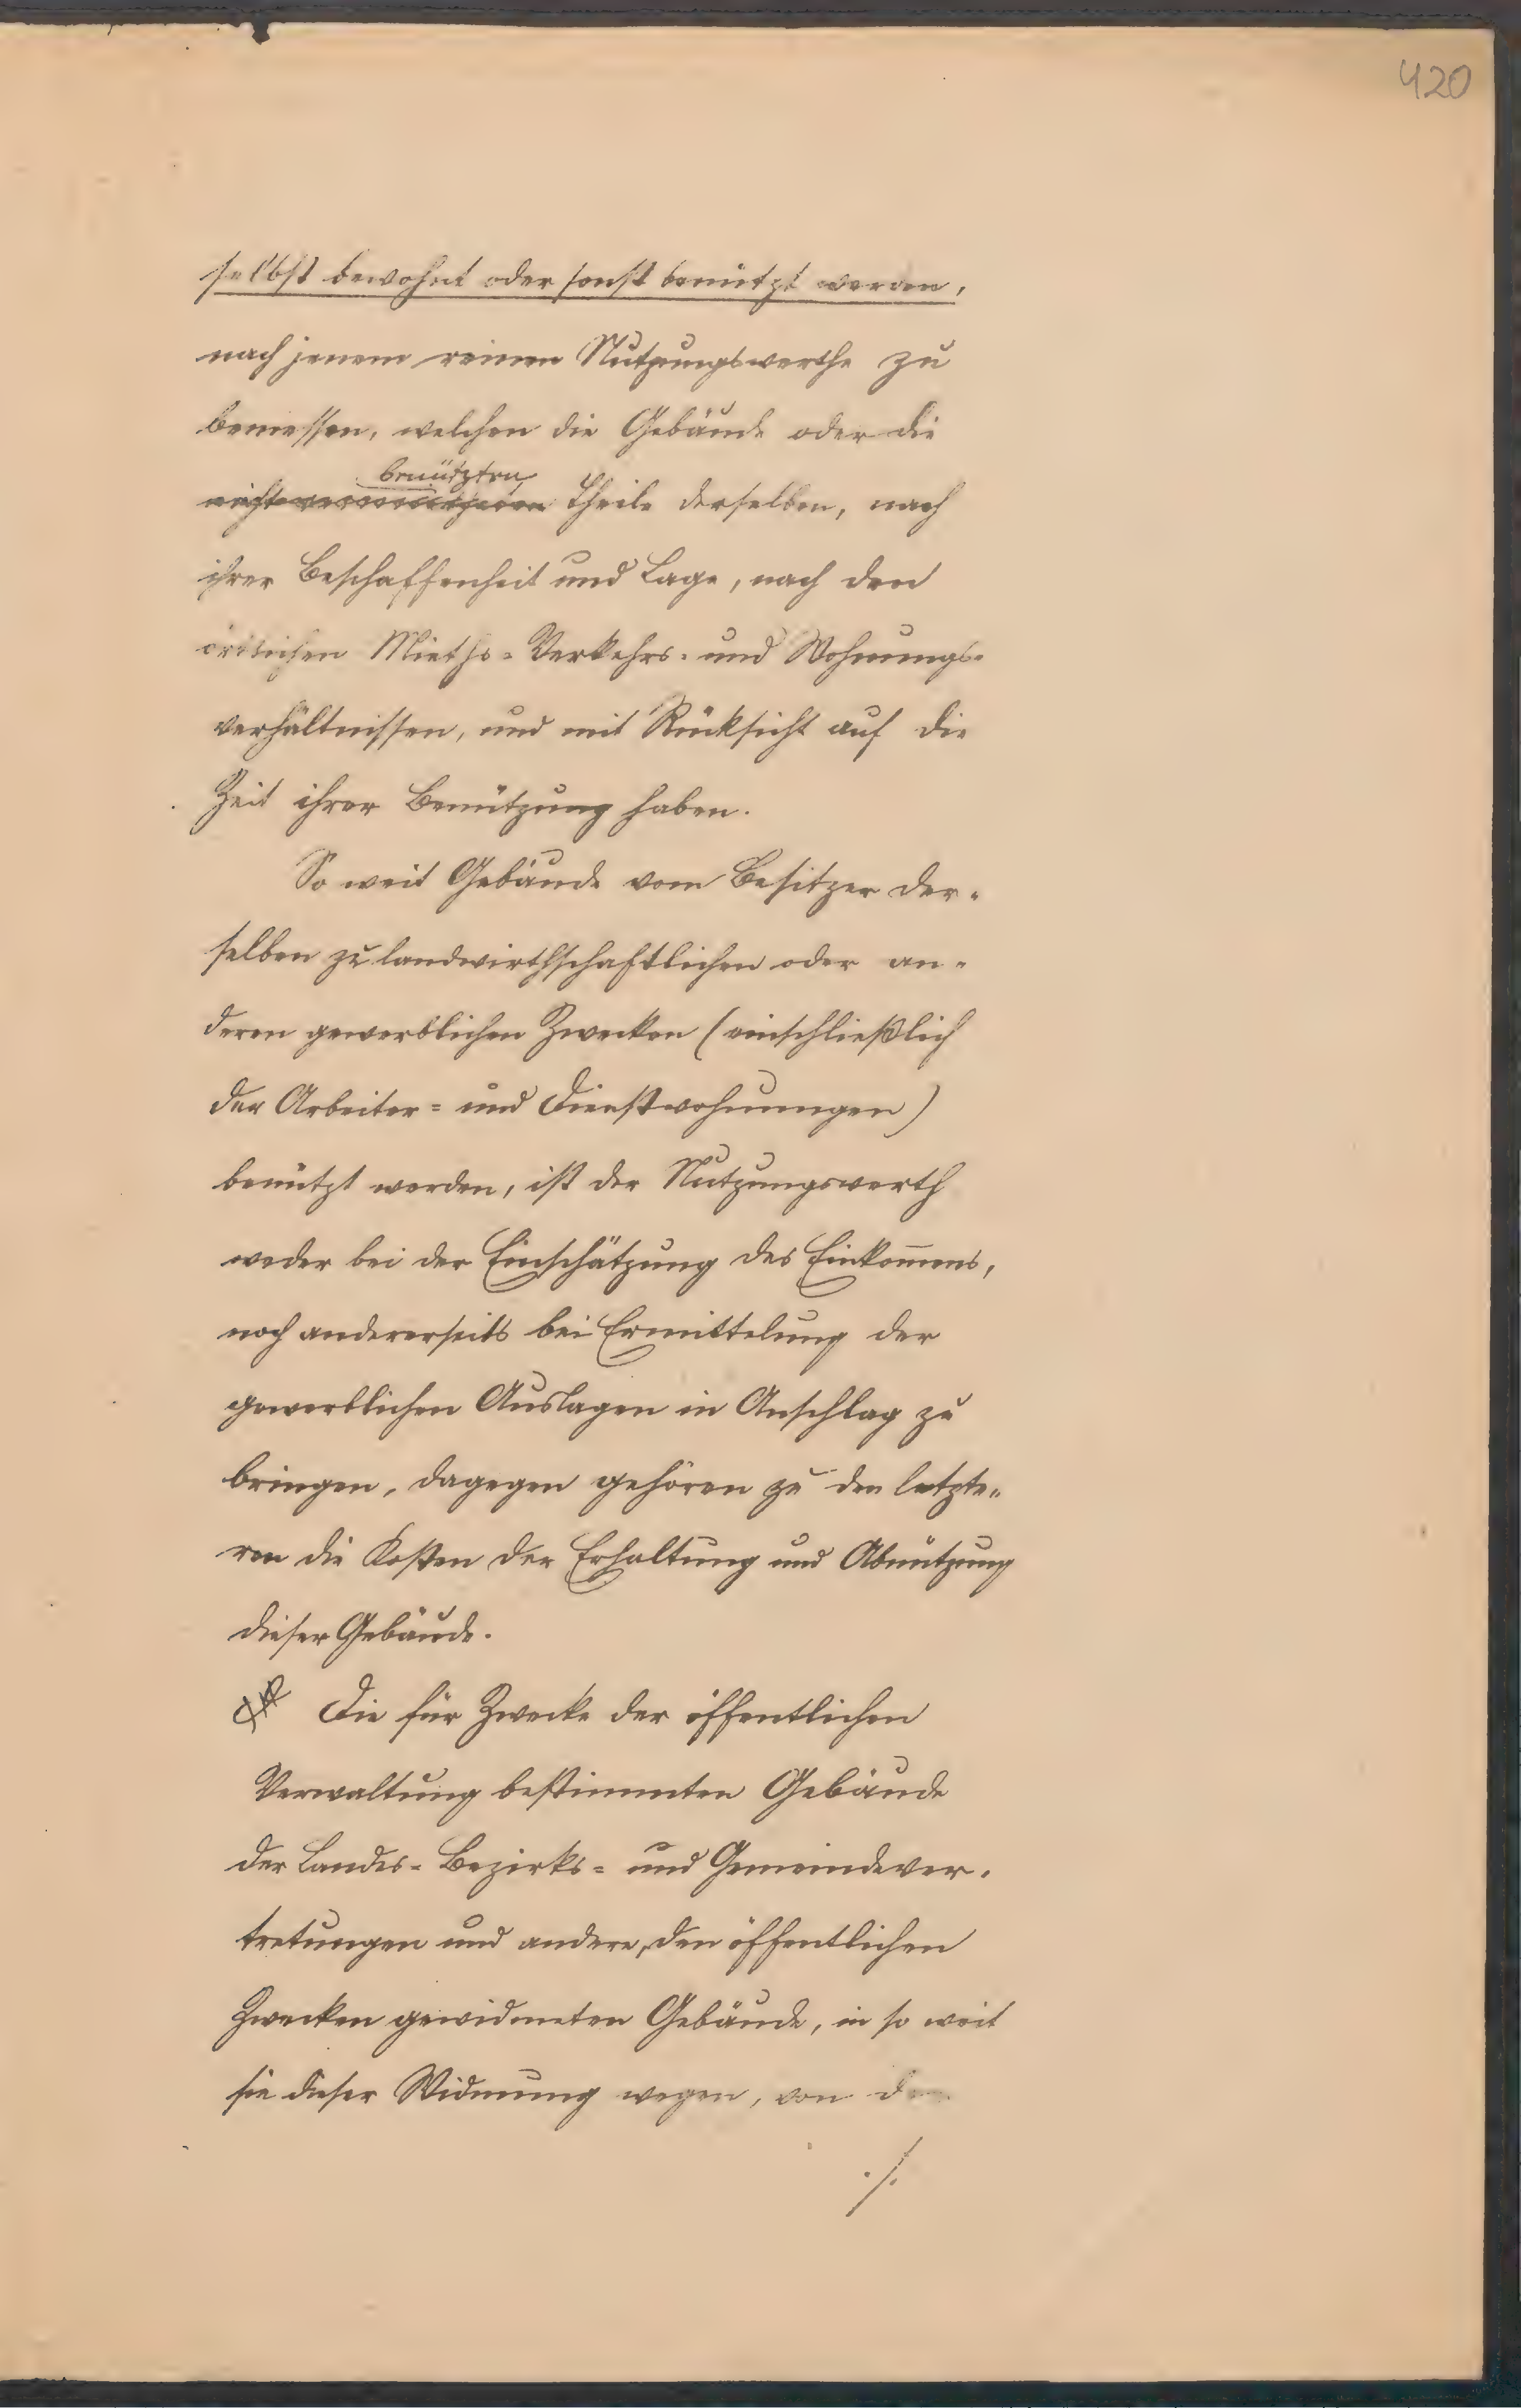 420
selbst bewohnt oder sonst benützt werden,
nach jenem reinen Nutzungswerthe zu
bemessen, welchen die Gebäude oder die
benützten
nicht vermietheten Theile derselben, nach
ihrer Beschaffenheit und Lage, nach den
örtlichen Mieths- Verkehrs- und Wohnungs-
verhältnissen, und mit Rücksicht auf die
Zeit ihrer Benützung haben.
So weit Gebäude vom Besitzer der-
selben zu landwirthschaftlichen oder an-
deren gewerblichen Zwecken (einschließlich
der Arbeiter- und Dienstwohnungen)
benützt werden, ist der Nutzungswerth
weder bei der Einschätzung des Einkom̄ens,
noch andererseits bei Ermittelung der
gewerblichen Auslagen in Anschlag zu
bringen, dagegen gehören zu den letzte-
ren die Kosten der Erhaltung und Abnützung
dieser Gebäude.
Die für Zwecke der öffentlichen
Verwaltung bestimmten Gebäude
der Landes- Bezirks- und Gemeindever-
tretungen und andere, den öffentlichen
Zwecken gewidmeten Gebäude, in so weit
sie dieser Widmung wegen, von der
./.